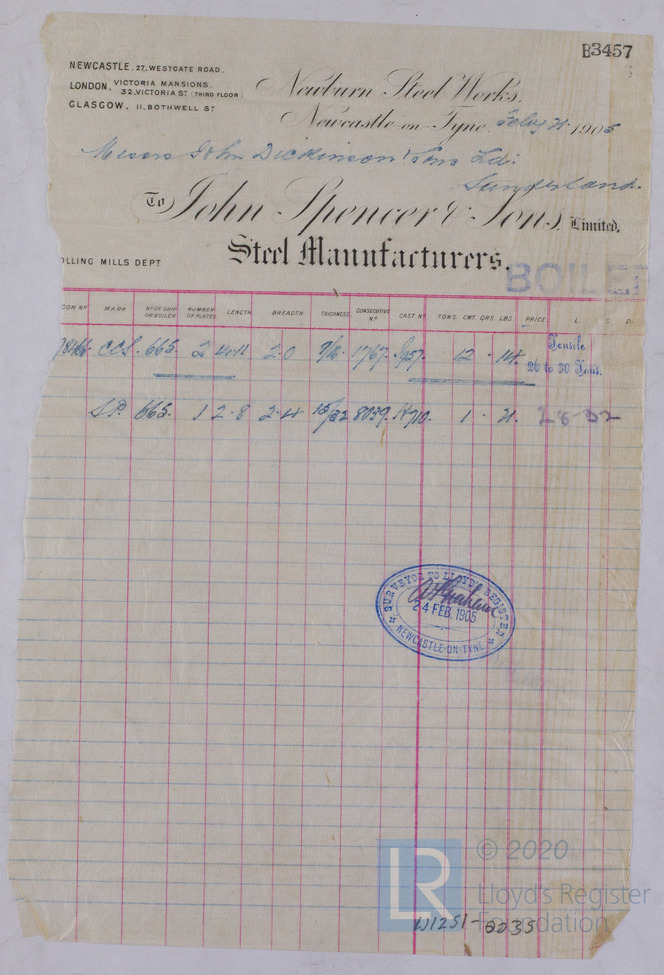 B3457
NEWCASTLE. 27, WESTGATE ROAD.
LONDON, VICTORIA MANSIONS,
32, VICTORIA ST (THIRD FLOOR)
GLASGOW, 11, BOTHWELL ST
Newburn Steel Works,
Newcastle-on-Tyne, Feby 21 1905
Messrs John Dickinson & Sons Ld:
Sunderland.
To John Spencer & Sons, Limited,
Steel Manufacturers.
OLLING MILLS DEPT
BOILE
GON NO MARK NO OF SHIP OR BOILER NUMBER OF PLATES LENGTH BREADTH THICKNESS CONSECUTIVE NO CAST NO TONS. CWT. QRS. LBS. PRICE L S D.
CCS. 665. 2 2.0 9/16. 1767. 12 - 14. Tensile
26 to 30 Tons.
S.P. 665. 1 2.8 2.4 15/32 8039. 1 - 21. 28-32
SURVEYOR TO LLOYD'S REGISTER
24 FEB. 1905
NEWCASTLE-ON-TYNE
LR
© 2020
Lloyd's Register
Foundation
W1251-0235